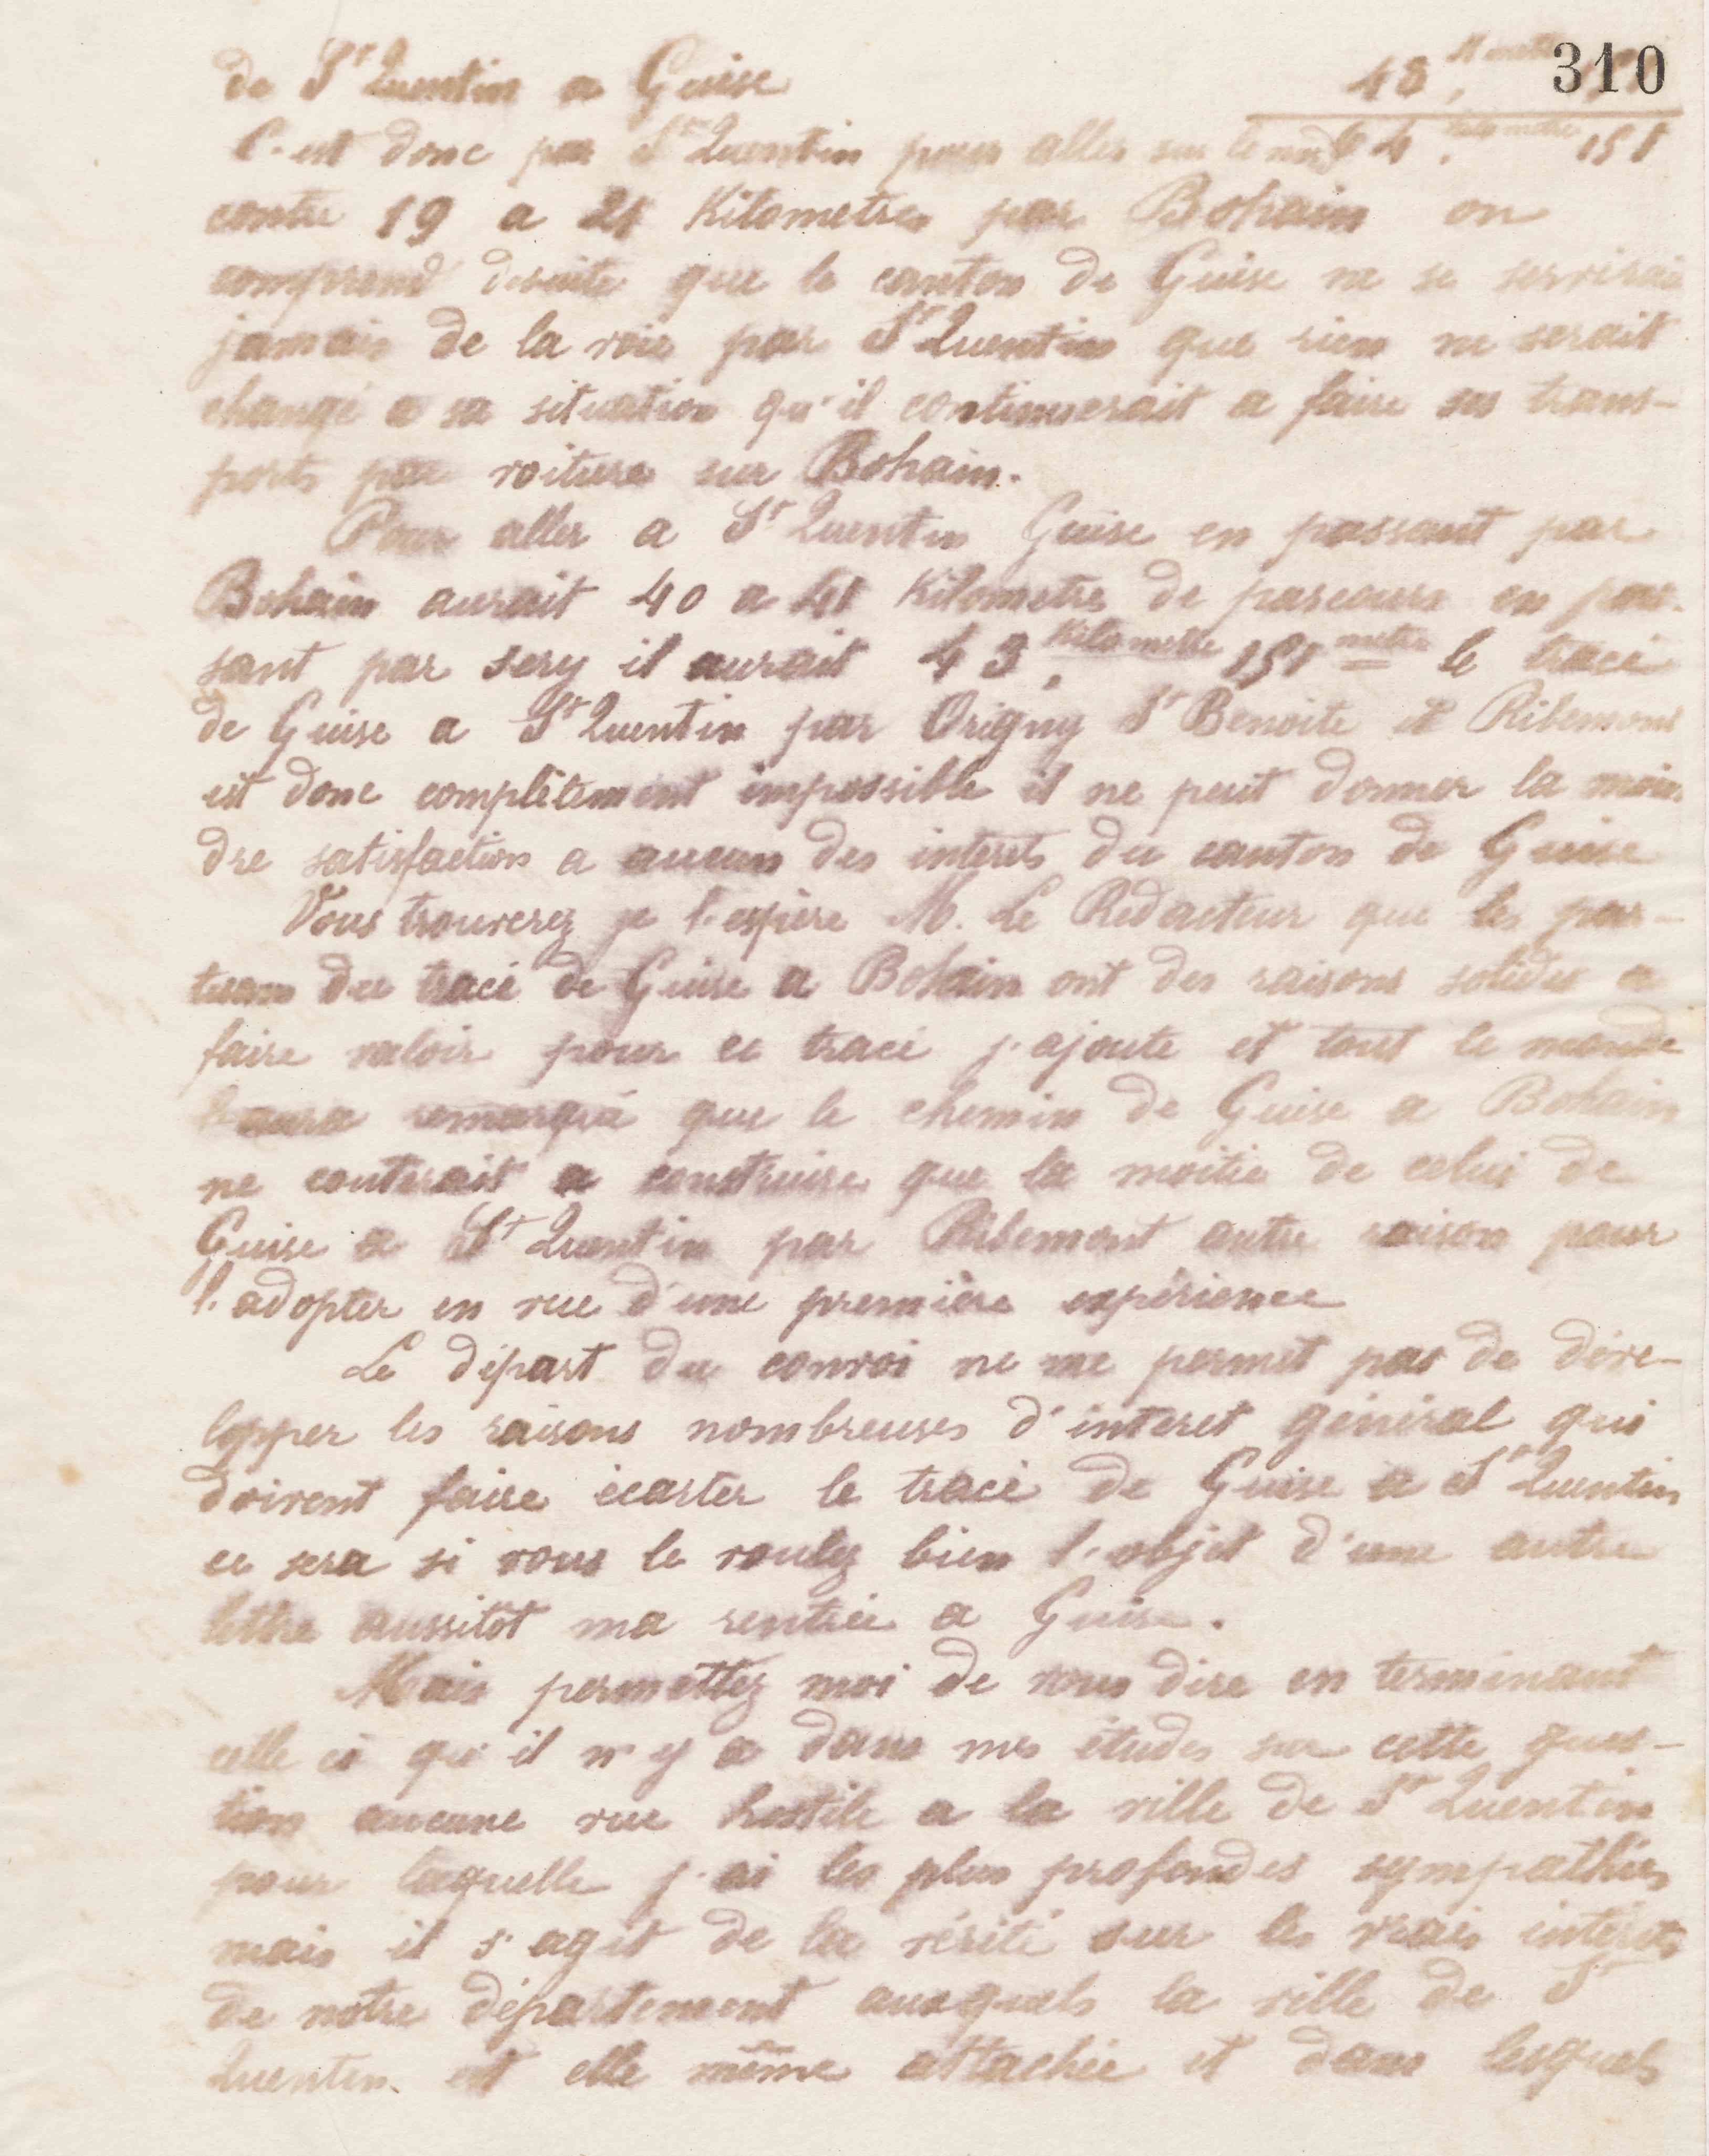 310
de St Quentin a Guise 43,
C'est donc par St Quentin pour aller sur le nord 64, Kilometre 151
contre 19 a 21 Kilometres par Bohain on
comprend desuite que le canton de Guise ne se servirait
jamais de la voie par St Quentin que rien ne serait
changé a sa situation qu'il continuerait a faire ses trans-
ports par voiture sur Bohain.
Pour aller a St Quentin Guise en passant par
Bohain aurait 40 a 41 Kilometres de parcours en pas-
sant par Sery il aurait 43, Kilometre 151 metre le tracé
de Guise a St Quentin par Origny St Benoite et Ribemont
est donc complètement impossible il ne peut donner la moin
dre satisfaction a aucun des interets du canton de Guise
Vous trouverez je l'espère M. Le Redacteur que les par-
tisans du tracé de Guise a Bohain ont des raisons solides a
faire valoir pour ce tracé j'ajoute et tout le monde
l'aura remarqué que le chemin de Guise a Bohain
ne couterait a construire que la moitié de celui de
Guise a St Quentin par Ribemont autre raison pour
l'adopter en vue d'une première expérience
Le départ du convoi ne me permet pas de déve-
lopper les raisons nombreuses d'interet général qui
doivent faire écarter le tracé de Guise a St Quentin
ce sera si vous le voulez bien l'objet d'une autre
lettre aussitôt ma rentrée a Guise.
Mais permettez moi de vous dire en terminant
celle ci qu'il n'y a dans mes études sur cette ques-
tion aucune vue hostile a la ville de St Quentin
pour laquelle j'ai les plus profondes sympathies
mais il s'agit de la vérité sur les vrais intérets
de notre département auxquels la ville de St
Quentin est elle même attachée et dans lesquels